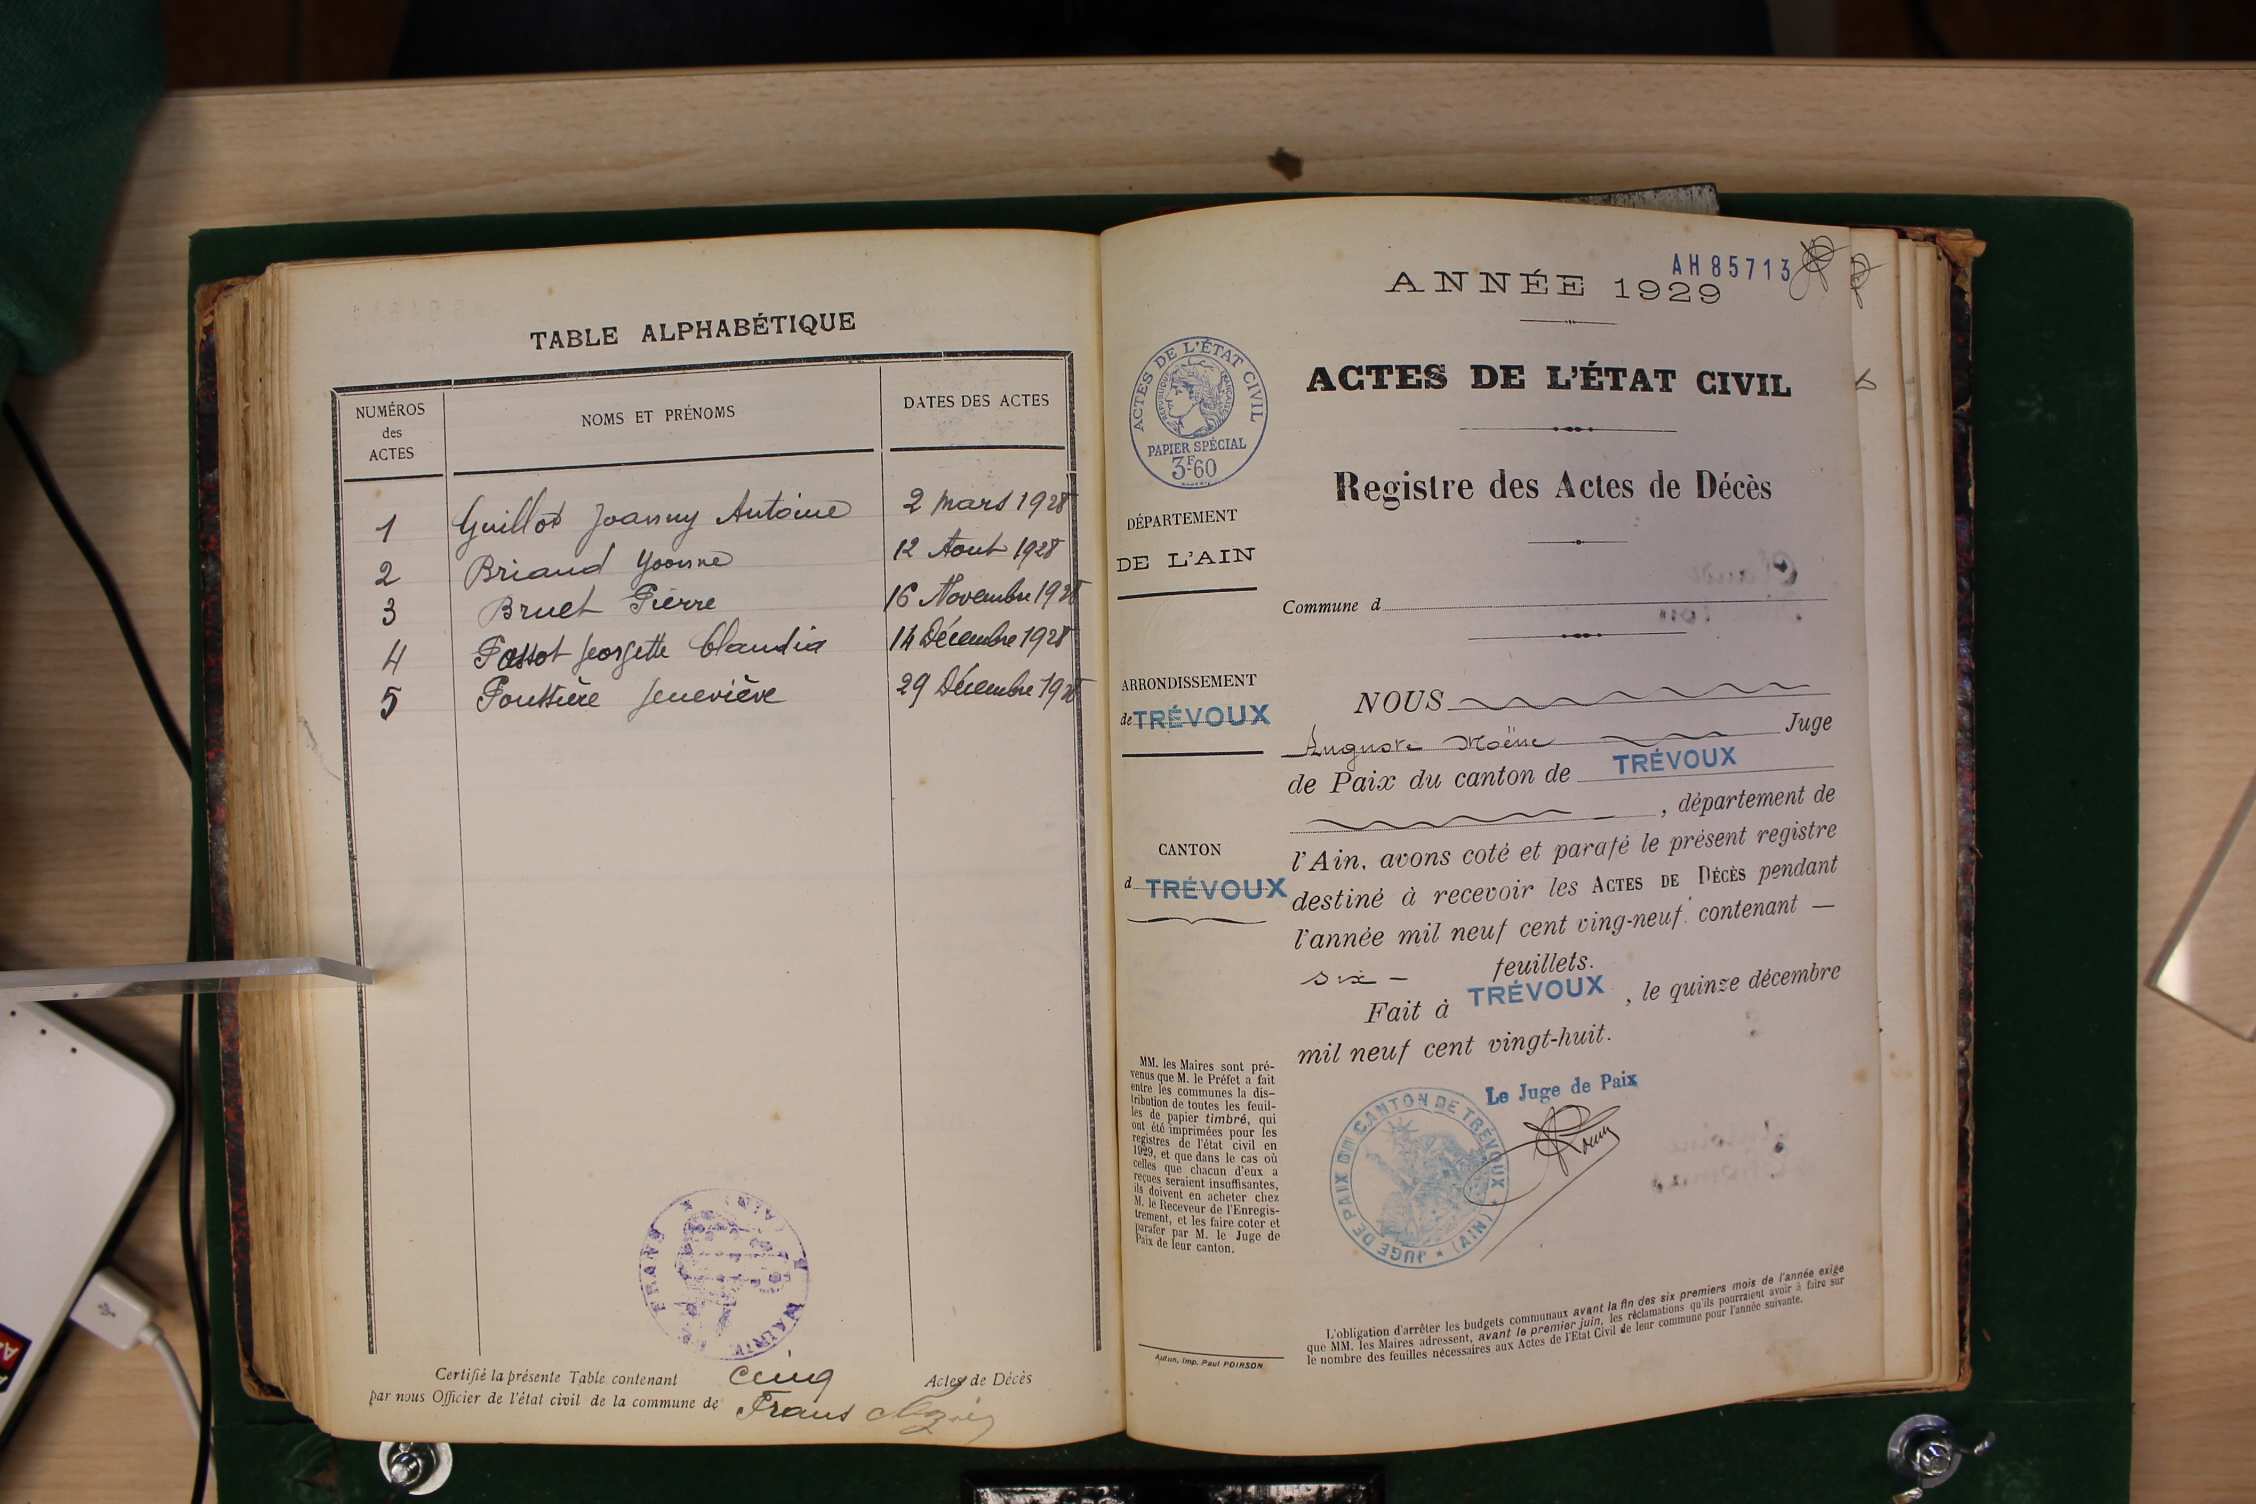 TABLE ALPHABÉTIQUE
NUMÉROS
des
ACTES
NOMS ET PRÉNOMS
DATES DES ACTES
1 Guillot Joanny Antoine 2 Mars 1928
2 Briand Yvonne 12 Aout 1928
3 Bruet Pierre 16 Novembre 1928
4 Georgette Claudia 14 Décembre 1928
5 Geneviève 29 Décembre 1928
FRANS
MAIRIE
(AIN)
Certifié la présente Table contenant cinq Actes de Décès
par nous Officier de l'état civil de la commune de Frans
AH 85713
ANNÉE 1929
ACTES DE L'ÉTAT CIVIL
RÉPUBLIQUE FRANÇAISE
PAPIER SPÉCIAL
3F60
ACTES DE L'ÉTAT CIVIL
Registre des Actes de Décès
DÉPARTEMENT
DE L'AIN
Commune d
ARRONDISSEMENT
de TRÉVOUX
CANTON
d TRÉVOUX
NOUS
Auguste Moëne Juge
de Paix du canton de TRÉVOUX
, département de
l'Ain, avons coté et parafé le présent registre
destiné à recevoir les ACTES DE DÉCÈS pendant
l'année mil neuf cent ving-neuf. contenant —
six — feuillets.
Fait à TRÉVOUX, le quinze décembre
mil neuf cent vingt-huit.
Le Juge de Paix
JUGE DE PAIX DU CANTON DE TRÉVOUX * (AIN) *
MM. les Maires sont pré-
venus que M. le Préfet a fait
entre les communes la dis-
tribution de toutes les feuil-
les de papier timbré, qui
ont été imprimées pour les
registres de l'état civil en
1929, et que dans le cas où
celles que chacun d'eux a
reçues seraient insuffisantes,
ils doivent en acheter chez
M. le Receveur de l'Enregis-
trement, et les faire coter et
parafer par M. le Juge de
Paix de leur canton.
Autun, Imp. Paul POIRSON
L'obligation d'arrêter les budgets communaux avant la fin des six premiers mois de l'année exige
que MM. les Maires adressent, avant le premier juin, les réclamations qu'ils pourraient avoir à faire sur
le nombre des feuilles nécessaires aux Actes de l'Etat Civil de leur commune pour l'année suivante.